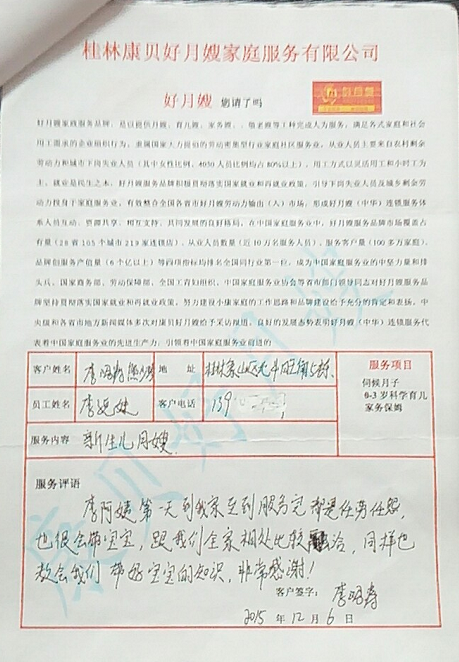 桂林康贝好月嫂家庭服务有限公司
好月嫂 您请了吗
好月嫂家政服务品牌,是以提供月嫂、育儿嫂、家务嫂、、敬老嫂等工种完成人为服务,满足各式家庭和社会
用工需求的企业组织行为,隶属国家大力提倡的劳动密集型行业家庭社区服务业。从业人员主要来自农村剩余
劳动力和城市下岗失业人员(其中女性比例、4050人员比例均占80%以上),用工方式以灵活用工和小时工为
主。就业是民生之本,好月嫂服务品牌积极贯彻落实国家就业和再就业政策,引导下岗失业人员返城乡剩余劳
动力投身于家庭服务业,有效整合全国各省市好月嫂劳动力输出(入)市场,形成好月嫂(中华)连锁服务体
系人员互动、资源共享、相互支持、共同发展的良好格局。在中国家庭服务业中,好月嫂服务品牌市场覆盖占
有量(28省105个城市219家连锁店)、从业人员数量(近10万名服务人员)、服务客户量(100多万家庭)、
品牌创服务产值量(6个亿以上)等四项指标均排名全国同行业第一位,成为中国家庭服务业的中坚力量和排
头兵。国家商务部、劳动保障部、全国工青妇组织、中国家庭服务业协会等省市部门领导同志对好月嫂服务品
牌坚持贯彻落实国家就业和再就业政策,努力建设小康家庭的工作思路和品牌建设给予充分的肯定和表扬。中
央级和各省市地方新闻媒体多次对康贝好月嫂给予采访报道。良好的发展态势表明好月嫂(中华)连锁服务代
表着中国家庭服务业的先进生产力,引领着中国家庭服务业前进的
客户姓名 地 址 桂林 服务项目
员工姓名 客户电话 139 伺候月子
0-3岁科学育儿
家务保姆
服务内容 新生儿月嫂
服务评语
李阿姨第一天到我家至到服务完都是任劳任怨,
也很会带宝宝,跟我们全家相处比较融洽,同样也
教会我们带好宝宝的知识,非常感谢!
客户签字:
2015年12月6日
康贝好月嫂